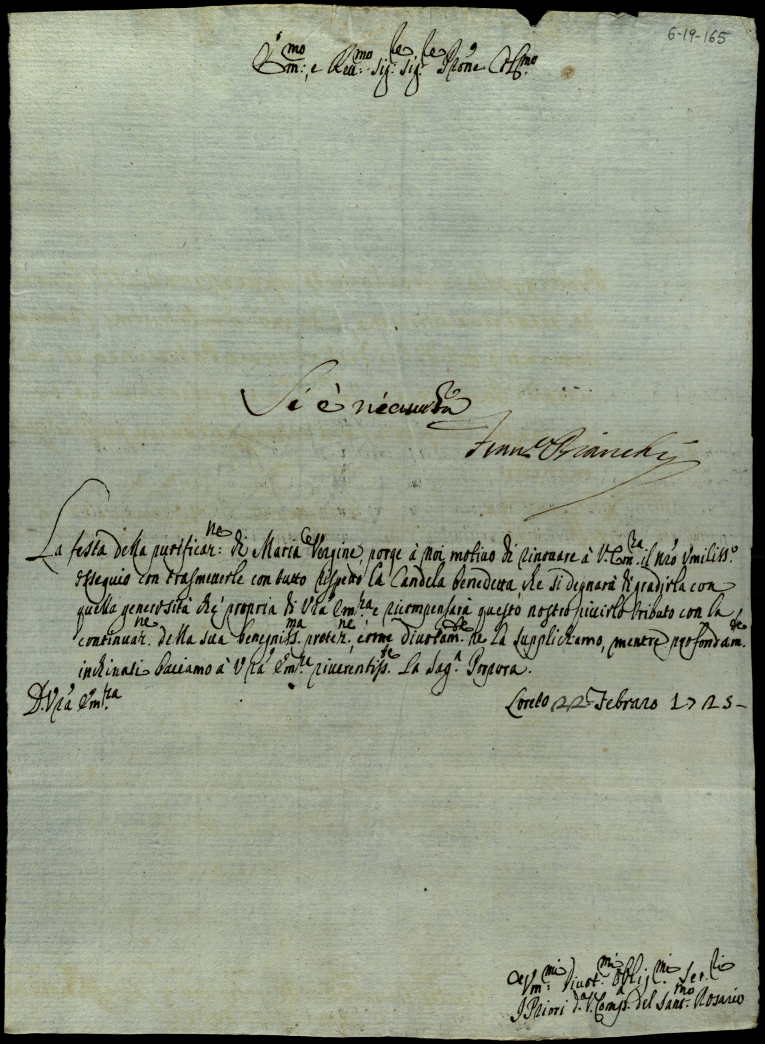 6-19-165
Em:mo e Reu:mo Sig:re Sig:re Prone Col:mo
Si è riceuuta
Fran.co Bianchi
La festa della purificar:ne di Maria Vergine porge à noi motivo di rinouare à V. Em:za il nro vmiliss.o
ossequio con trasmetterle con tutto rispetto la Candela benedetta, che si degnarà di gradirla con
quella generosità ch'è propria di Vra Em:za e ricompensarà questo nostro riuerito tributo con la
continuaz:ne della sua benigniss:ma protez:ne, come diuotam:te ne la supplichiamo, mentre profondam:te
inchinati baciamo à Vra Em:za riuerentiss:te La Sag.a Porpora.
D. Vra Em:za
Loreto 22 Febraro 1725
Vm:mi Diuot:mi Oblig:mi Ser:ri
I Priori d.a V. Comp.a del Sant:mo Rosario